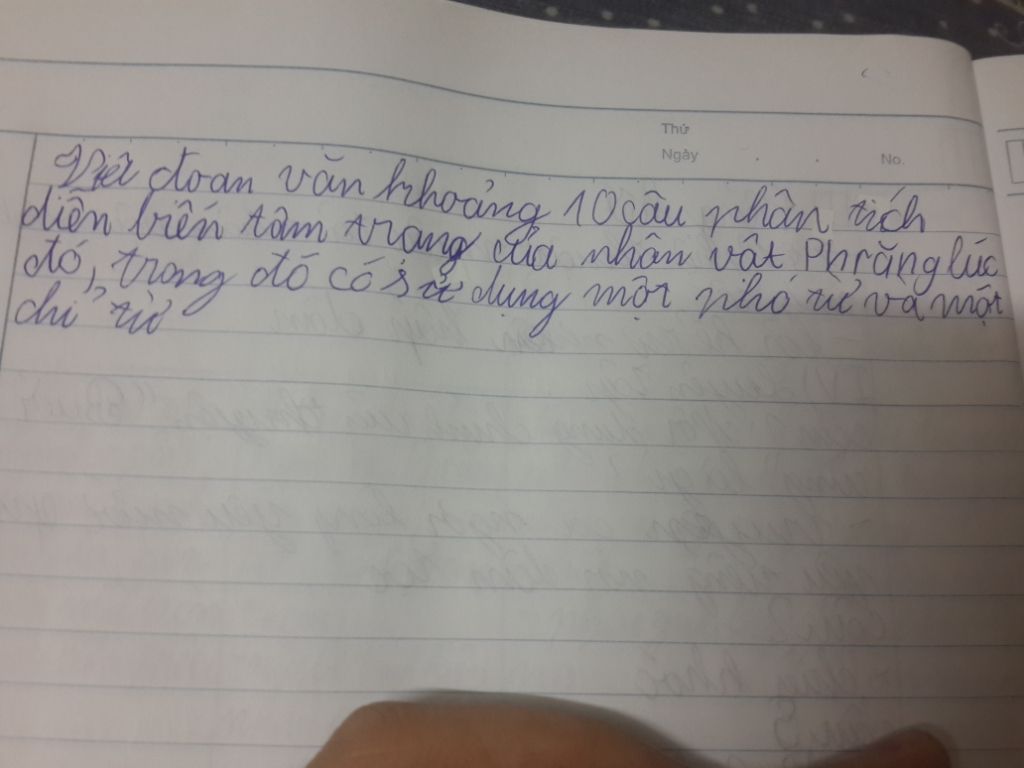 Thứ
Ngày . . No.
Viết đoan văn khoảng 10 câu phân tích
diễn biến tâm trạng của nhân vật Phrăng lúc
đó, trong đó có sử dụng một phó từ và một
chỉ từ